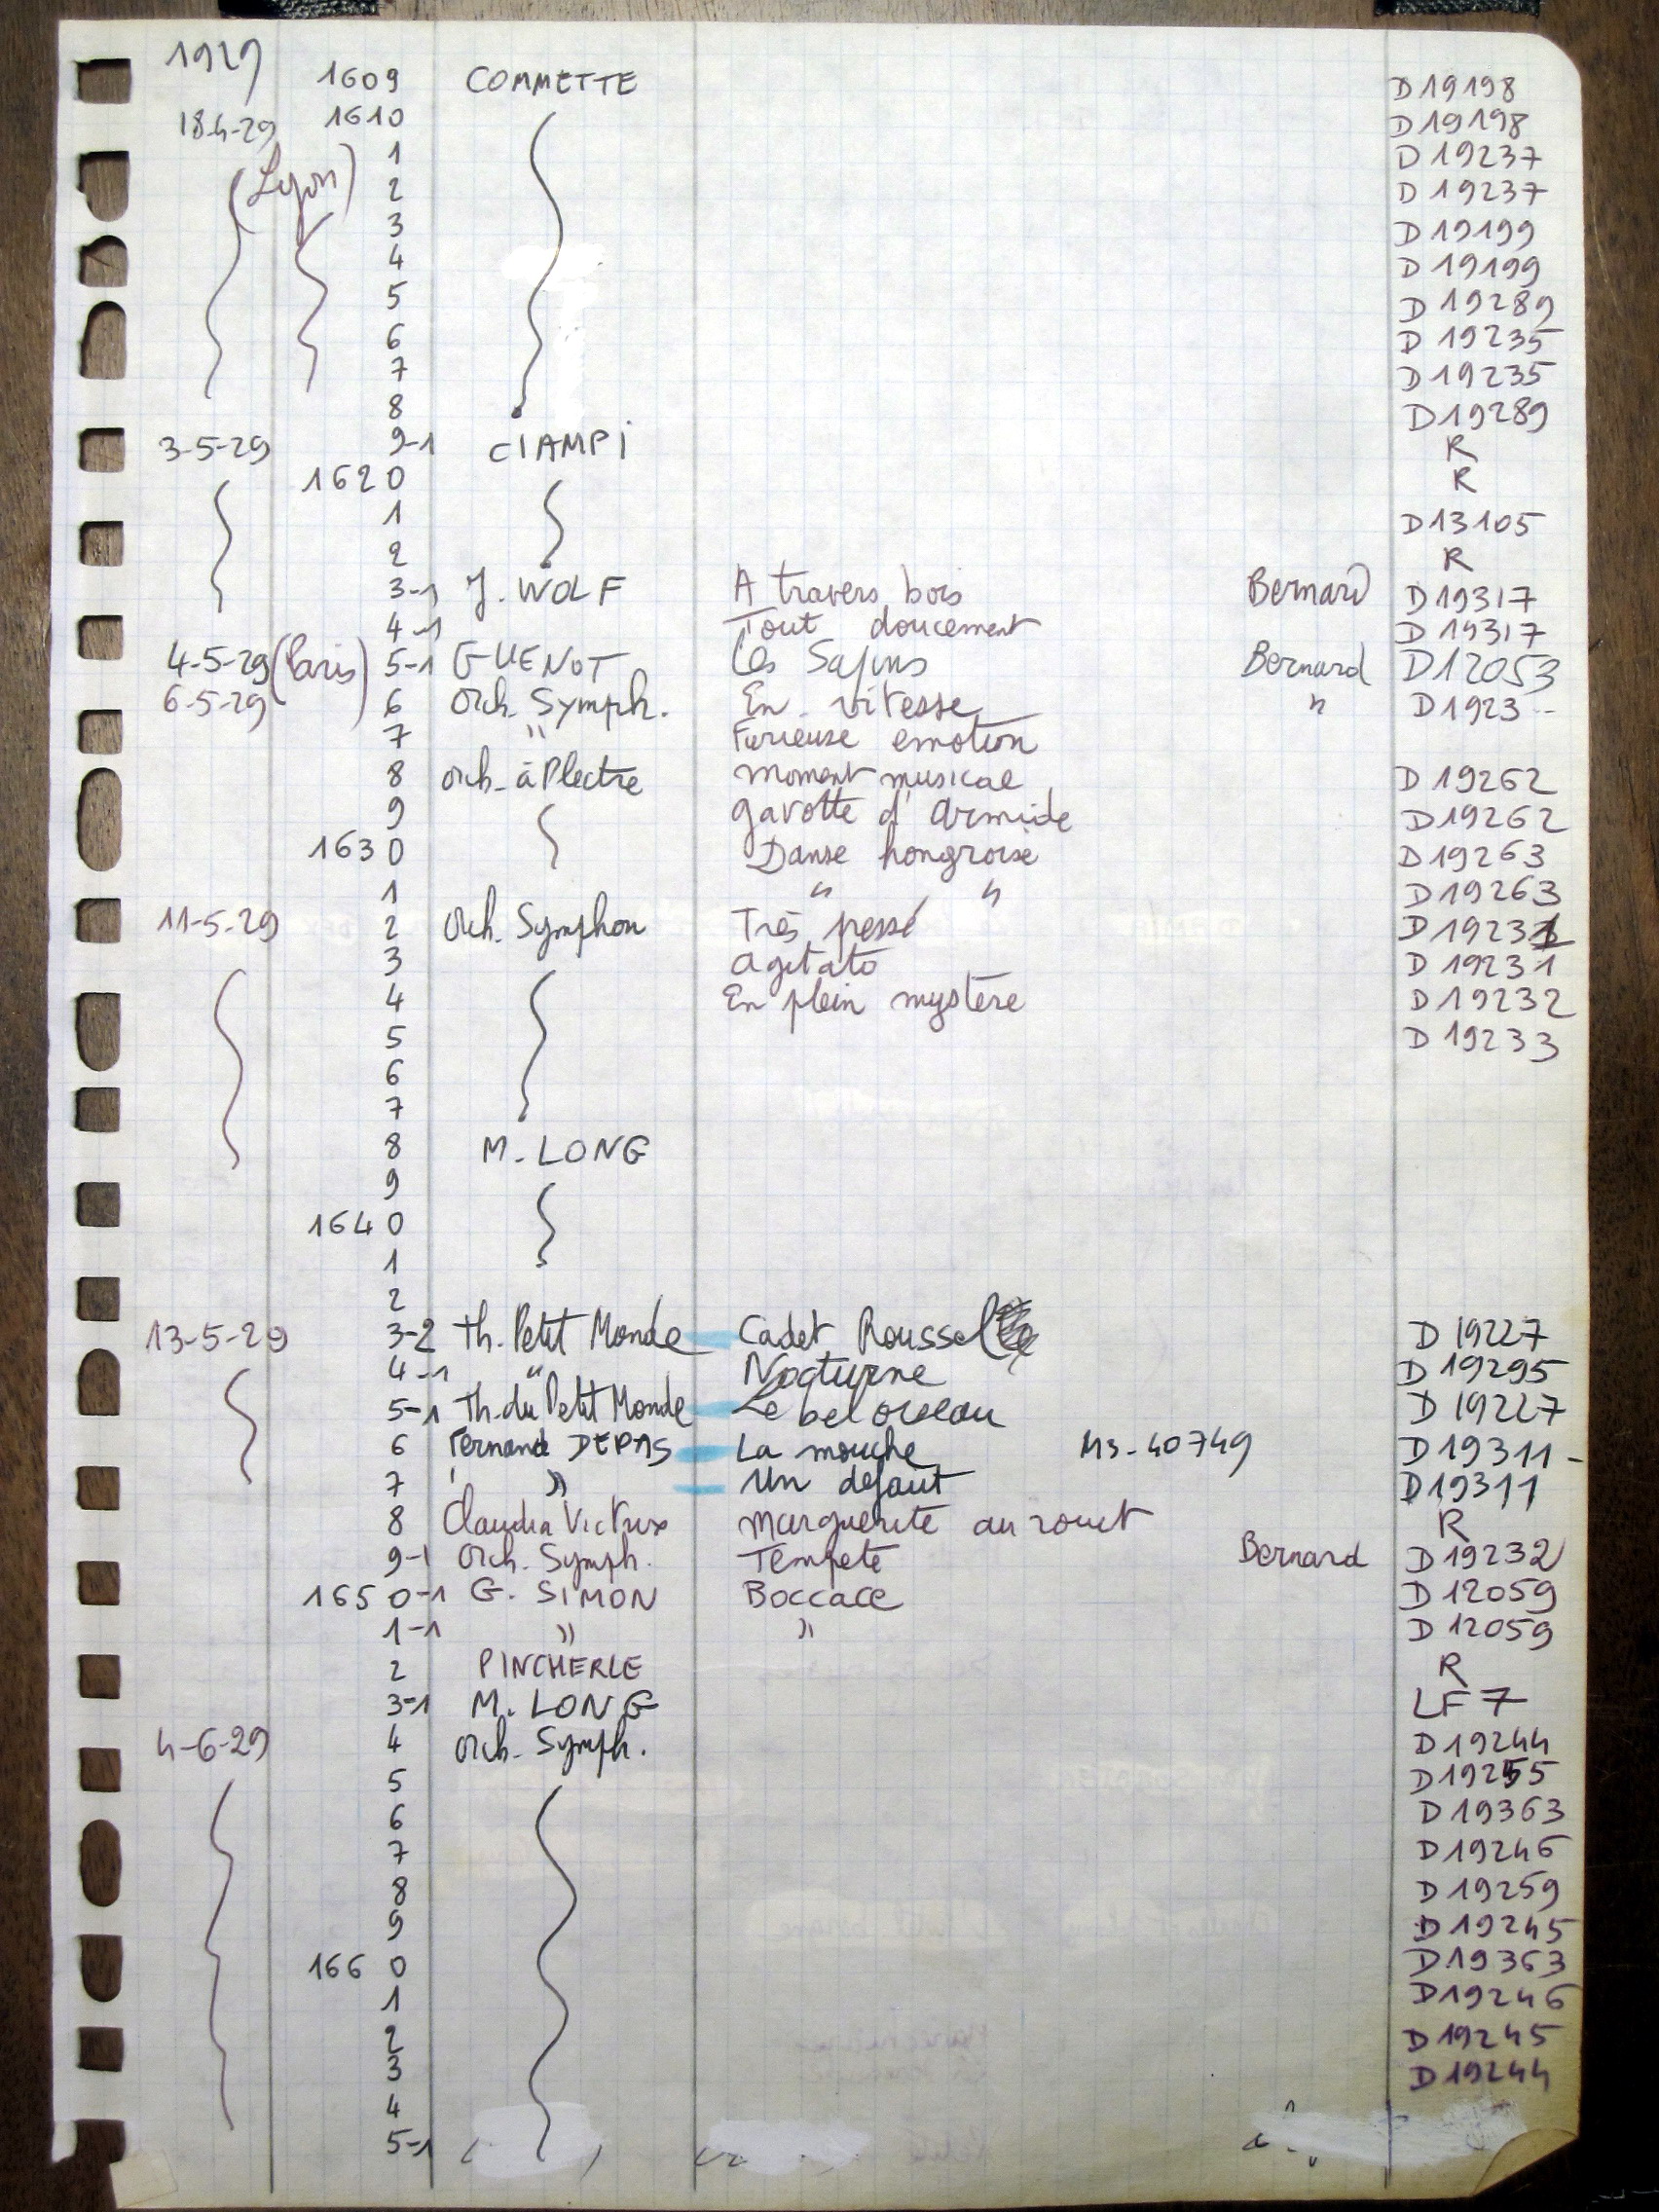 1929 1609 COMMETTE D 19198
18-4-29 1610 D 19198
(Lyon) 1 D 19237
2 D 19237
3 D 19199
4 D 19199
5 D 19289
6 D 19235
7 D 19235
8 D 19289
3-5-29 9-1 CIAMPI R
1620 R
1 D13105
2 R
3-1 J. WOLF A travers bois Bernard D 19317
4-1 Tout doucement D 19317
4-5-29 (Paris) 5-1 GUENOT Les Sapins Bernard D12053
6-5-29 6 Orch. Symph. En vitesse " D1923--
7 " Furieuse emotion
8 orch. à Plectre moment musical D 19262
9 gavotte d'armide D19262
1630 Danse hongroise D 19263
1 " " D 19263
11-5-29 2 Orch. Symphon Très pressé D 19231
3 agitato D 19231
4 En plein mystère D 19232
5 D 19233
6
7
8 M. LONG
9
1640
1
2
13-5-29 3-2 Th. Petit Monde Cadet Roussel D 19227
4-1 " Nocturne D 19295
5-1 Th. du Petit Monde Le bel oiseau D 19227
6 Fernand DEPAS La mouche M3-40749 D 19311-
7 " Un defaut D19311
8 Claudia Victrix marguerite au rouet R
9-1 Orch. Symph. Tempete Bernard D 19232
1650-1 G. SIMON Boccace D 12059
1-1 " " D 12059
2 PINCHERLE R
3-1 M. LONG LF 7
4-6-29 4 orch. Symph. D19244
5 D19255
6 D 19363
7 D19246
8 D 19259
9 D 19245
1660 D19363
1 D19246
2 D 19245
3 D 19244
4
5-1